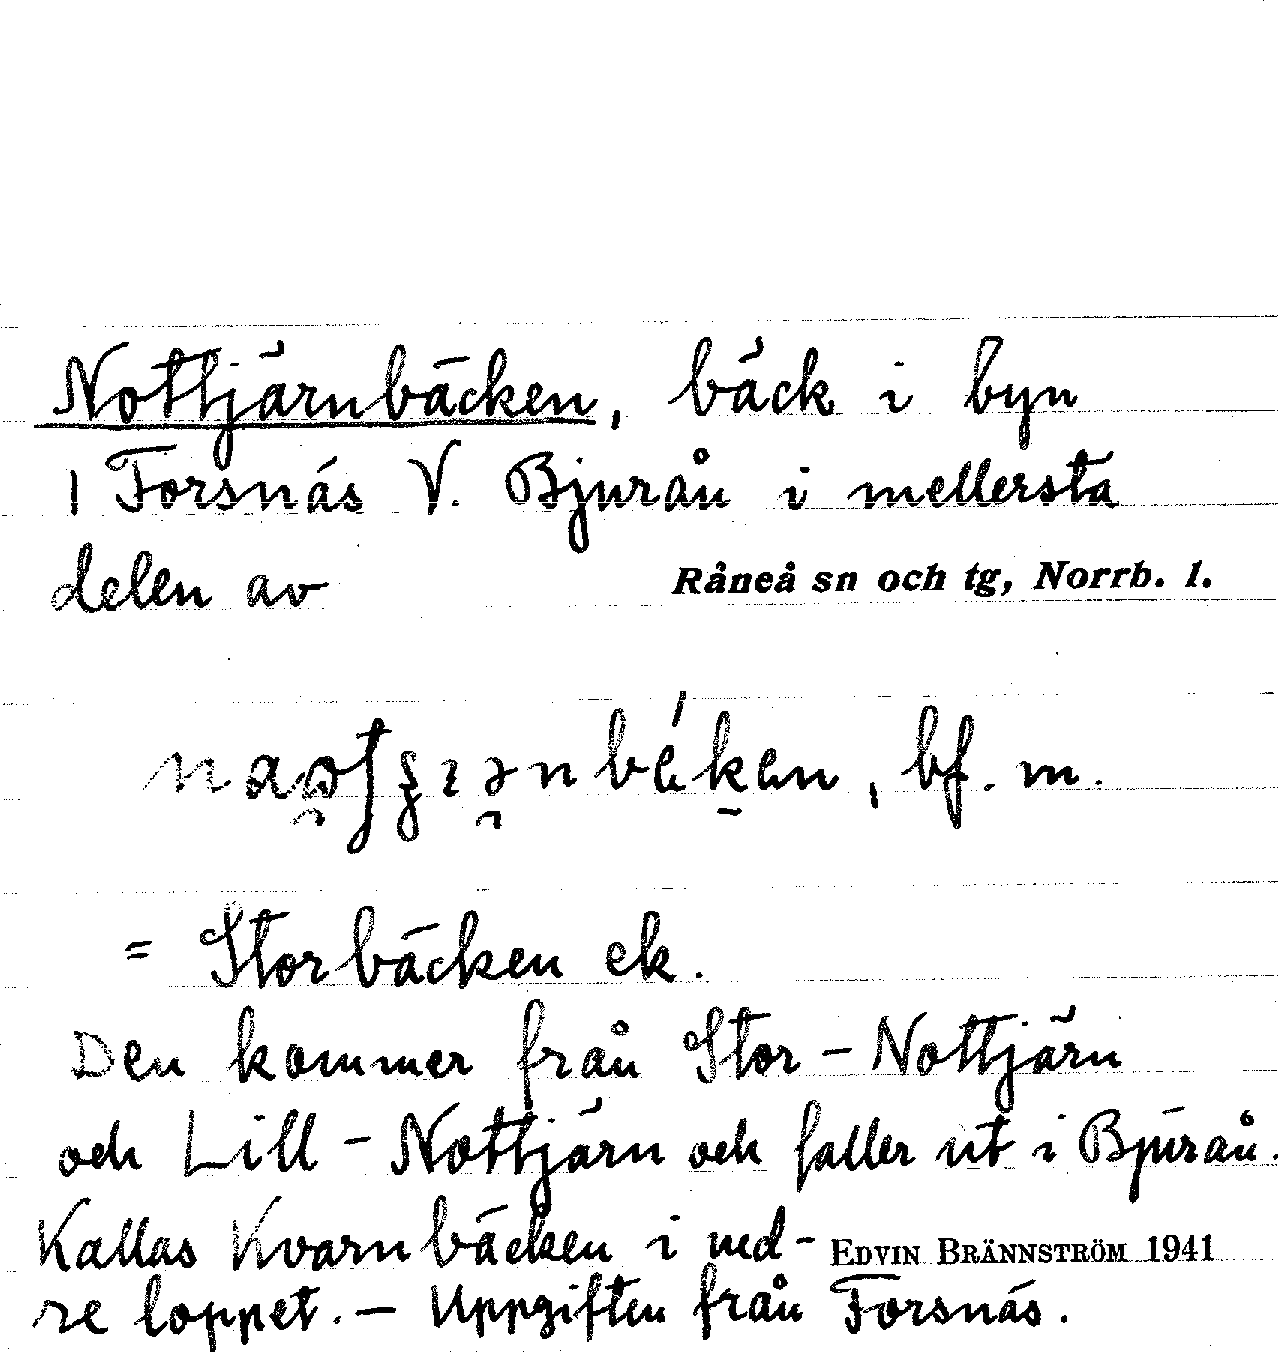 Nottjärnbäcken, bäck i byn
| Forsnäs V. Bjurån i mellersta
delen av Råneå sn och tg, Norrb. l.
bf. m.
= Storbäcken ek.
Den kommer från Stor-Nottjärn
och Lill-Nottjärn och faller ut i Bjurån.
Kallas Kvarnbäcken i ned- EDVIN BRÄNNSTRÖM 1941
re loppet. — Uppgiften från Forsnäs.